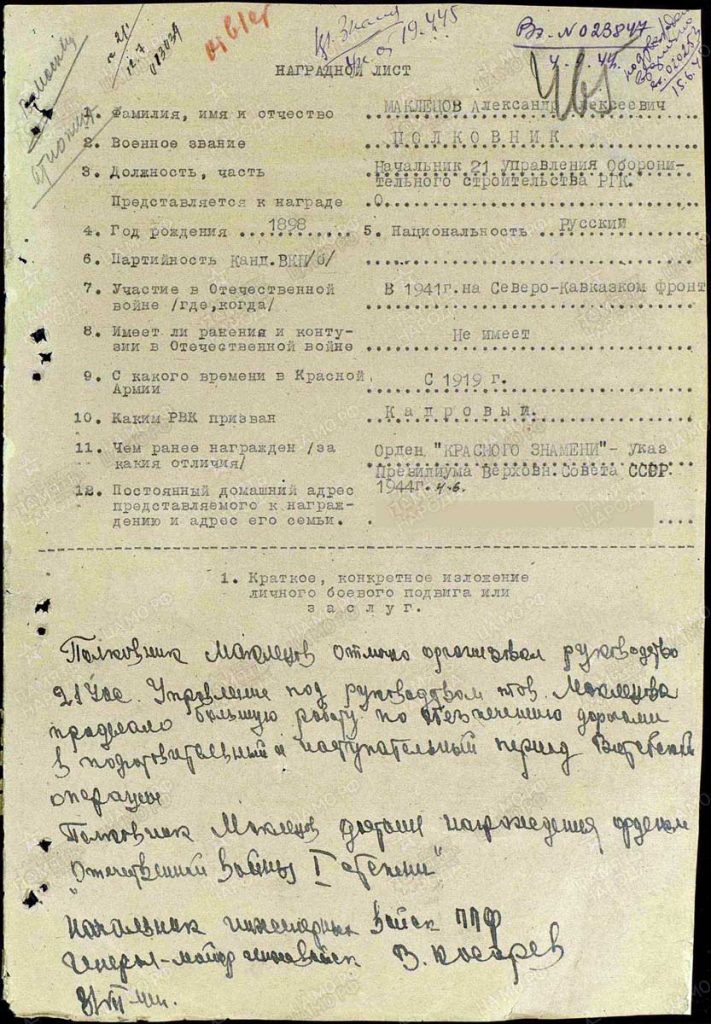 Вх. N023847
19.445
НАГРАДНОЙ ЛИСТ
1. Фамилия, имя и отчество МАКЛЕЦОВ Александр Алексеевич
2. Военное звание ПОЛКОВНИК
3. Должность, часть Начальник 21 Управления Оборони-
тельного строительства РГК.
Представляется к награде О
4. Год рождения 1898 5. Национальность Русский
6. Партийность Канд.ВКП/б/
7. Участие в Отечественной В 1941г.на Северо-Кавказком фронт
войне /где,когда/
8. Имеет ли ранения и конту- Не имеет
зии в Отечественной войне
9. С какого времени в Красной С 1919 г.
Армии
10. Каким РВК призван Кадровый.
11. Чем ранее награжден /за Орден "КРАСНОГО ЗНАМЕНИ"- Указ
какия отличия/ Президиума Верховн.Совета СССР
12. Постоянный домашний адрес 1944г. 4.6.
представляемого к награж-
дению и адрес его семьи.
1. Краткое, конкретное изложение
личного боевого подвига или
заслуг.
Полковник Маклецов отлично организовал руководство
21 УОС. Управление под руководством тов. Маклецова
проделало большую работу по обеспечению дорогами
в подготовительный и наступательный период Витебской
операции
Полковник Маклецов достоин награждения орденом
"Отечественной войны I степени"
Начальник инженерных войск
Генерал-майор инж.войск В. Косарев